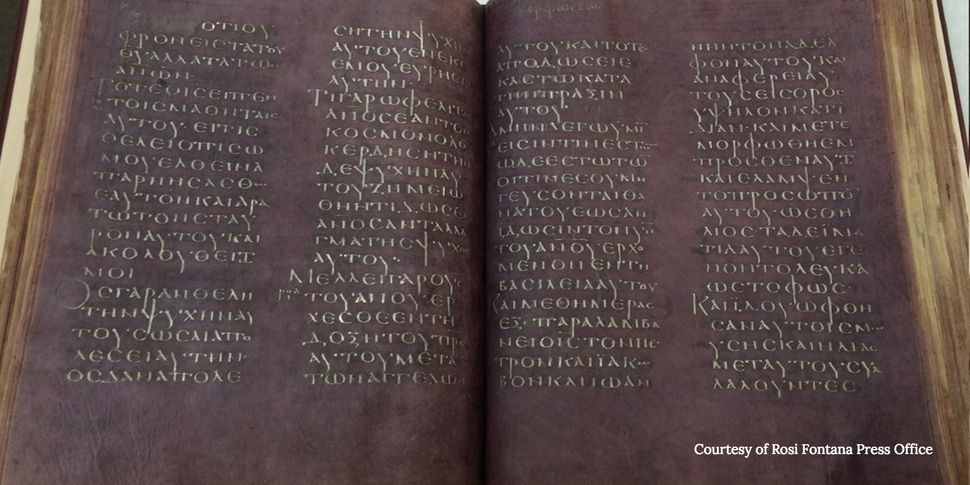 ΟΤΙΟΥ
ΦΡΟΝΕΙΣΤΑΤΟΥ
ΘΥΑΛΛΑΤΑΤΩΝ
ΑΝΩΝ·
ΤΟΤΕΟΙΣΕΙΠΕΝ
ΤΟΙΣΜΑΘΗΤΑΙΣ
ΑΥΤΟΥ·ΕΙΤΙΣ
ΘΕΛΕΙΟΠΙΣΩ
ΜΟΥΕΛΘΕΙΝΑ
ΠΑΡΝΗΣΑΣΘΩ
ΕΑΥΤΟΝΚΑΙΑΡΑ
ΤΩΤΟΝΣΤΑΥ
ΡΟΝΑΥΤΟΥΚΑΙ
ΑΚΟΛΟΥΘΕΙΤ
ΜΟΙ
ΟΣΓΑΡΑΝΘΕΛΗ
ΤΗΝΨΥΧΗΝΑΥ
ΤΟΥΣΩΣΑΙΑΠΟ
ΛΕΣΕΙΑΥΤΗΝ·
ΟΣΔΑΝΑΠΟΛΕ
ΣΗΤΗΝΨΥΧΗΝ
ΑΥΤΟΥΕΝΕΚΕ
ΕΜΟΥΕΥΡΗΣΕΙ
ΑΥΤΗΝ
ΤΙΓΑΡΩΦΕΛΕΙΤ
ΑΝΟΣΕΑΝΤΟΝ
ΚΟΣΜΟΝΟΛΟ
ΚΕΡΔΗΣΗΤΗΝ
ΔΕΨΥΧΗΝΑΥ
ΤΟΥΖΗΜΕΙΩ
ΘΗΗΤΙΔΩΣΕΙ
ΑΝΟΣΑΝΤΑΛΛΑ
ΓΜΑΤΗΣΨΥΧΗΣ
ΑΥΤΟΥ·
ΜΕΛΛΕΙΓΑΡΟΥΣ
ΤΟΥΑΝΟΥΕΡ
ΧΕΣΘΕΕΝΤΗ
ΔΟΞΗΤΟΥΠΡΣ
ΑΥΤΟΥΜΕΤΑ
ΤΩΝΑΓΓΕΛΩΝ
ΑΥΤΟΥΚΑΙΤΟΤΕ
ΑΠΟΔΩΣΕΙΕ
ΚΑΣΤΩΚΑΤΑ
ΤΗΝΠΡΑΞΙΝ
ΑΥΤΟΥ
ΑΜΗΝΛΕΓΩΥΜΙ
ΕΙΣΙΝΤΙΝΕΣΤ
ΩΔΕΕΣΤΩΤΩ
ΟΙΤΙΝΕΣΟΥΜΗ
ΓΕΥΣΟΝΤΑΙΘΑ
ΝΑΤΟΥΕΩΣΑΝ
ΙΔΩΣΙΝΤΟΝΥΝ
ΤΟΥΑΝΟΥΕΡΧΟ
ΜΕΝΟΝΕΝΤΗ
ΒΑΣΙΛΕΙΑΑΥΤΟΥ
ΚΑΙΜΕΘΗΜΕΡΑΣ
ΕΞ·ΠΑΡΑΛΑΜΒΑ
ΝΕΙΟΙΣΤΟΝΠΕ
ΤΡΟΝΚΑΙΙΑΚ
ΒΟΝΚΑΙΙΩΑΝ
ΝΗΝΤΟΝΑΔΕΛ
ΦΟΝΑΥΤΟΥΚΑΙ
ΑΝΑΦΕΡΕΙΑΥ
ΤΟΥΣΕΙΣΟΡΟΣ
ΥΨΗΛΟΝΚΑΤΙ
ΔΙΑΝ·ΚΑΙΜΕΤΕ
ΜΟΡΦΩΘΗΕΜ
ΠΡΟΣΘΕΝΑΥΤ
ΚΑΙΕΛΑΜΨΕΝ
ΤΟΠΡΟΣΩΠΟ
ΑΥΤΟΥΩΣΟΗ
ΛΙΟΣΤΑΔΕΙΜΑ
ΤΙΑΑΥΤΟΥΕΓΕ
ΝΟΝΤΟΛΕΥΚΑ
ΩΣΤΟΦΩΣ·
ΚΑΙΙΔΟΥΩΦΘΗ
ΣΑΝΑΥΤΟΙΣΜ
ΥΣΗΣΚΑΙΗΛΙΑΣ
ΜΕΤΑΥΤΟΥΣΥΛ
ΛΑΛΟΥΝΤΕΣ
Courtesy of Rosi Fontana Press Office